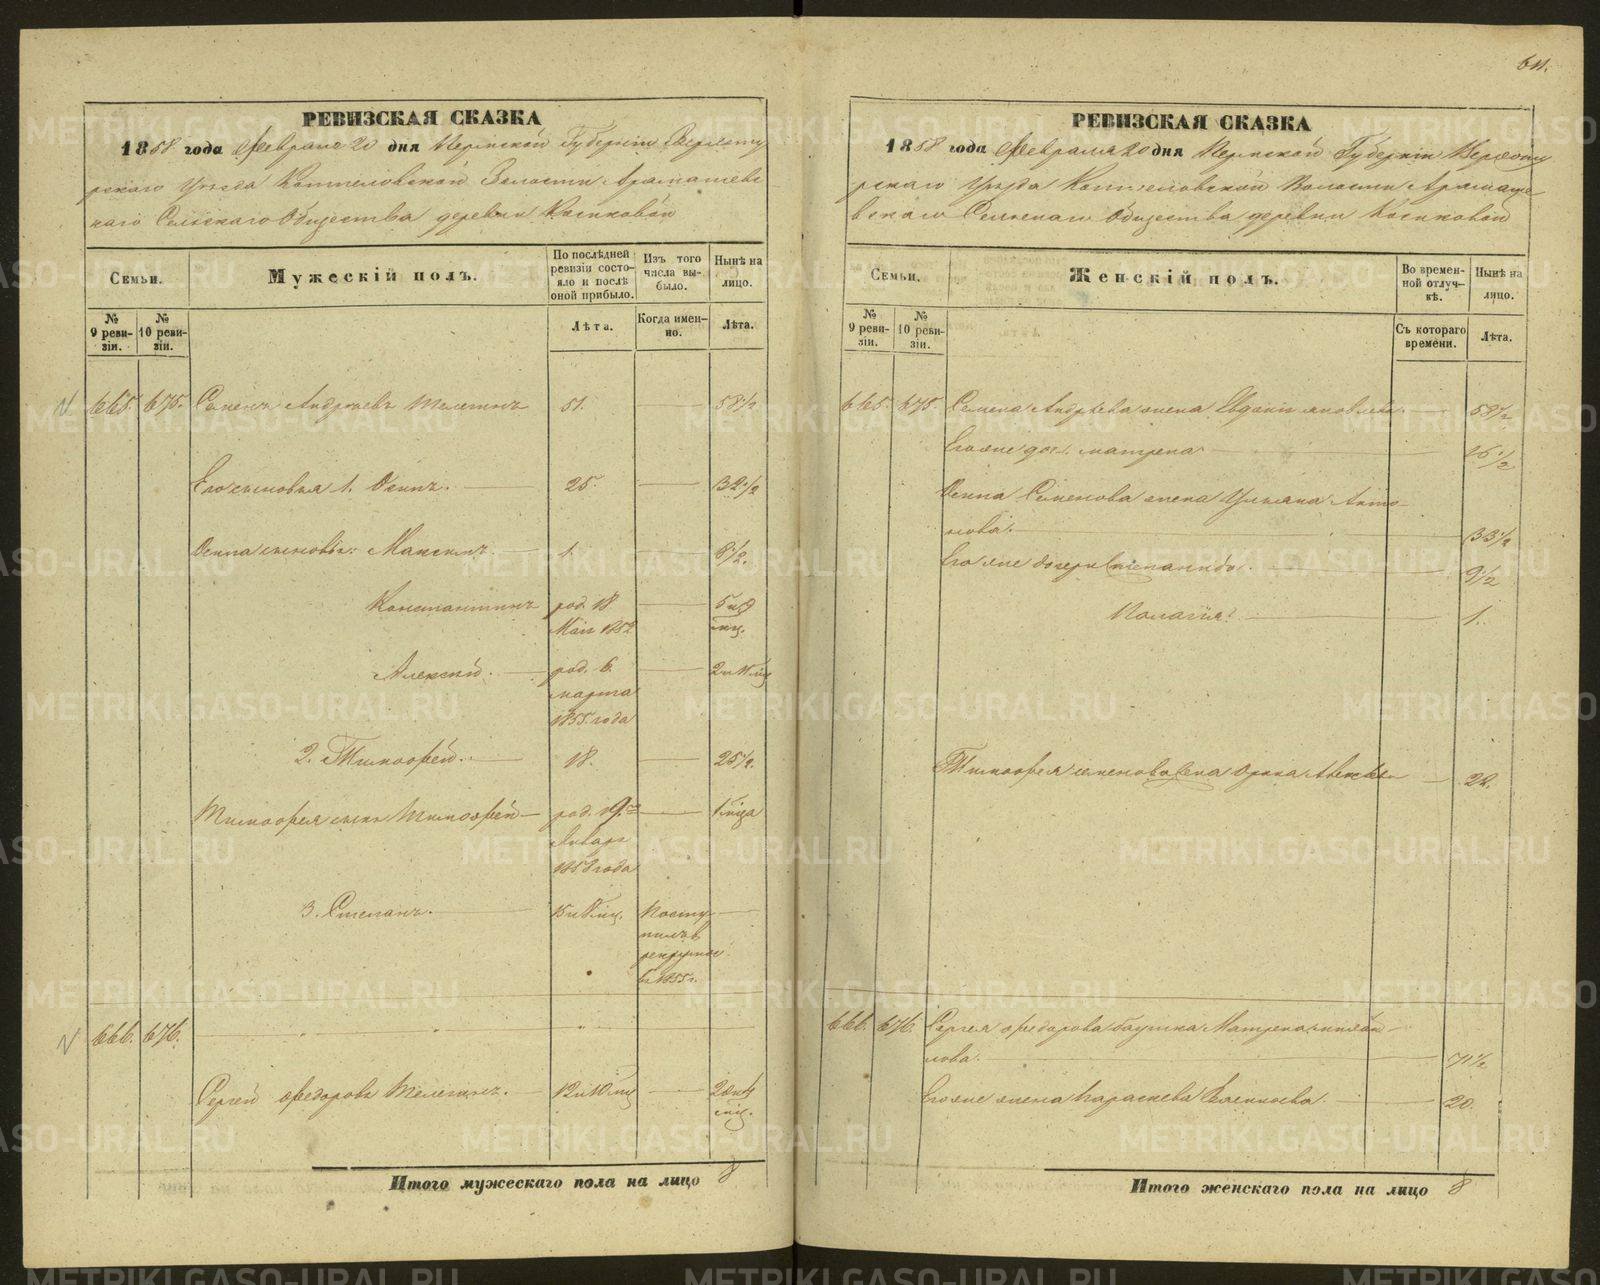 РЕВИЗСКАЯ СКАЗКА
1858 года Февраля 20 дня Пермской Губернiи Верхоту
рскаго Уѣзда Коптеловской Волости Арамашевс
каго Сельскаго Общества деревни Косиковой
Семьи.
Мужескiй полъ.
По послѣдней ревизiи состояло и послѣ оной прибыло.
Изъ того числа выбыло.
Нынѣ на лицо.
№ 9 ревизiи.
№ 10 ревизiи.
Лѣта.
Когда именно.
Лѣта.
665. 675. Семенъ Андреевъ Телегинъ 51. 58½
Его сыновья 1. Осипъ. 25. 32½
Осипа сыновья: Максимъ. 1. 8½.
Константинъ род. 18 5 и 9
Маiя 1852 мц.
Алексѣй. род. 6. 2 и 11 мц
марта
1855 года
2. Тимофей. 18. 25½.
Тимофея сынъ Тимофей род. 19го 1 мца
Января
1858 года
3. Степанъ. 15 и 8 мц. Посту
пилъ в
рекруты
въ 1855 г.
666. 676.
Сергей Федоровъ Телегинъ. 12 и 10 мц 20 и 4
мц.
Итого мужескаго пола на лицо 8
611.
РЕВИЗСКАЯ СКАЗКА
1858 года Февраля 20 дня Пермской Губернiи Верхоту
рскаго Уѣзда Коптеловской Волости Арамаше
вскаго Сельскаго Общества деревни Косиковой
Семьи.
Женскiй полъ.
Во временной отлучкѣ.
Нынѣ на лицо.
№ 9 ревизiи.
№ 10 ревизiи.
Съ котораго времени.
Лѣта.
665. 675. Семена Андрѣева жена Евдокiя Яковлева. 58½
Его же доч. Матрена 16½
Осипа Семенова жена Ульяна Анто-
нова. 33½
Его же дочери Степанида. 9½
Палагiя. 1.
Тимофея Семенова жена Орина 22.
666. 676. Сергея Федорова Матрена
лова. 71½
Его же жена 20.
Итого женскаго пола на лицо 8
METRIKI.GASO-URAL.RU